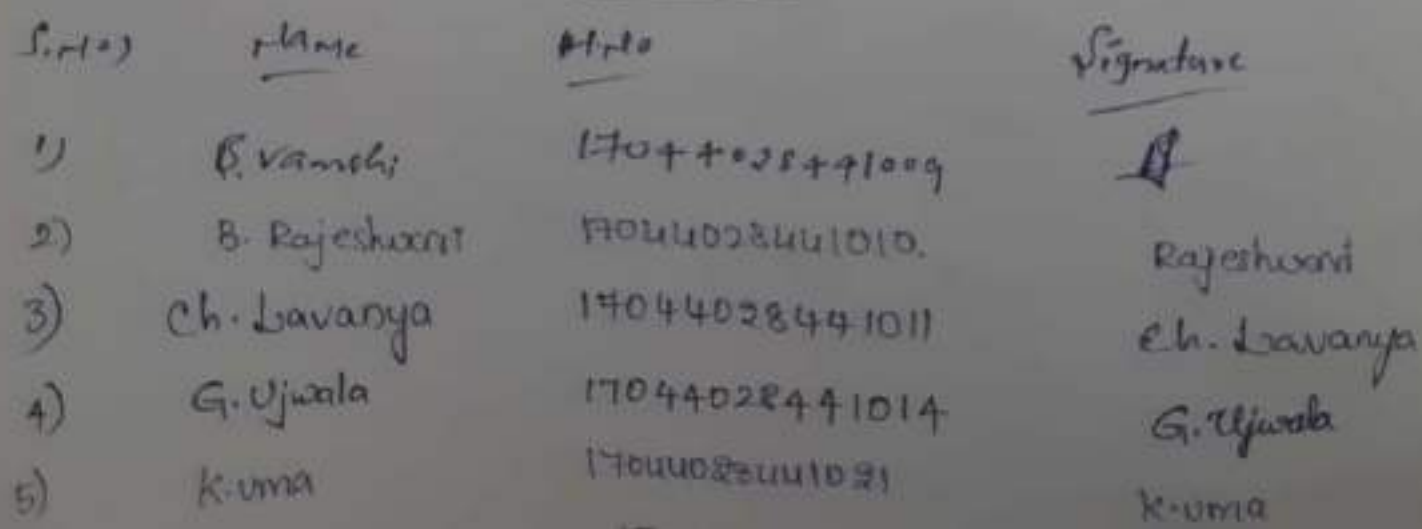 S.No) Name H.No Signature
1) B. Vamshi 17044028441009
2) B. Rajeshwari 17044028441010. Rajeshwari
3) Ch. Lavanya 17044028441011 Ch. Lavanya
4) G. Ujwala 17044028441014 G. Ujwala
5) K. uma 17044028441021 K. uma